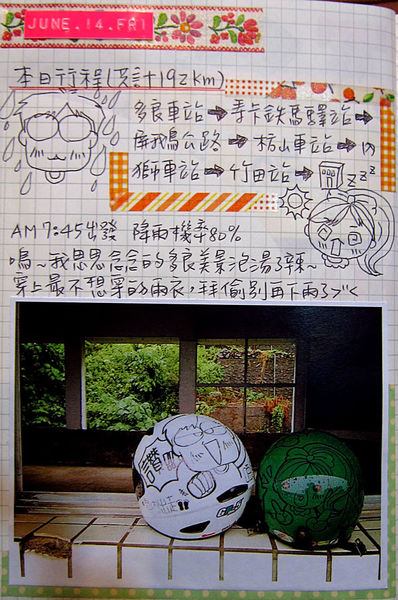 JUNE.14.FRI
本日行程(共計192km)
多良車站➡香卡鉄馬驛站➡
屏鵝公路➡枋山車站➡內
獅車站➡竹田站➡
zzz
AM7:45出發 降雨機率80%
嗚~我思思念念的多良美景泡湯了辣~
穿上最不想穿的雨衣,拜偷別再下雨了
讚